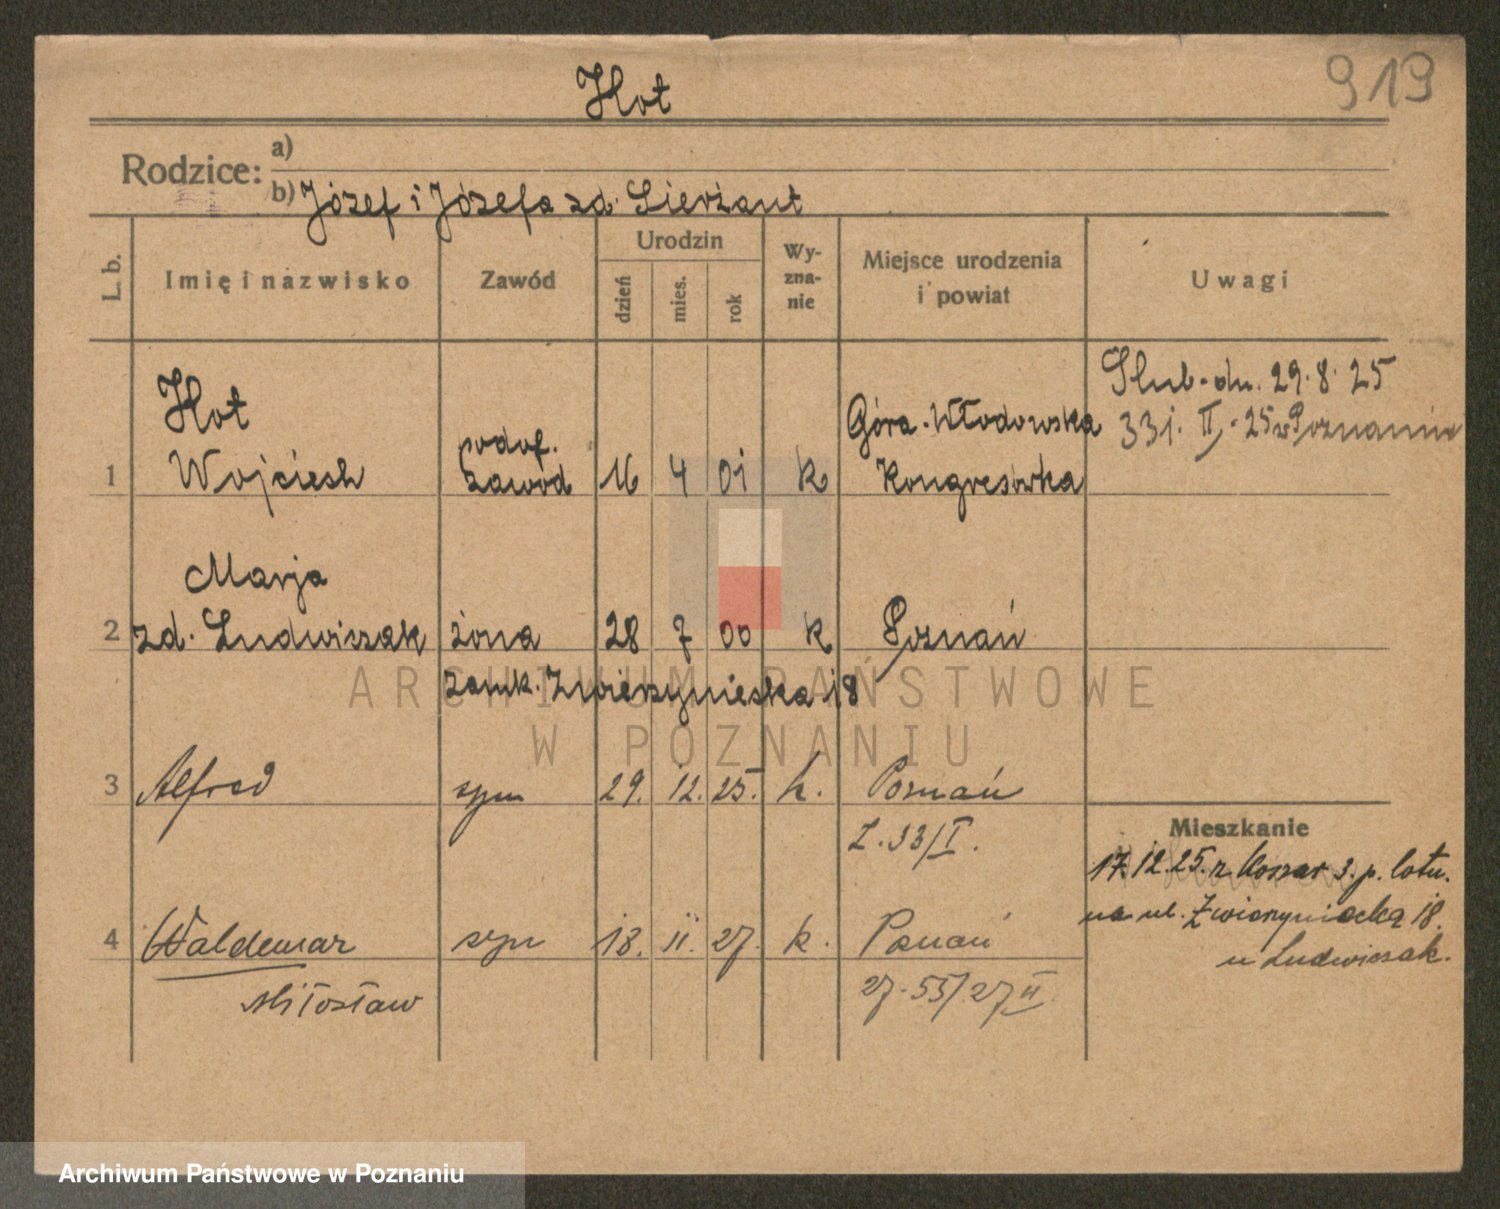 919
Hot
Rodzice:
a)
b) Józef i Józefa zd. Sierżant
L. b.
Imię i nazwisko
Zawód
Urodzin
dzień
mies.
rok
Wy-
zna-
nie
Miejsce urodzenia
i powiat
Uwagi
Hot
1 Wojciech
podof.
zawod
16 4 01 k
Góra-Włodowska
Kongresówka
Slub-dn. 29.8.25
331. II-25 w Poznaniu
Marja
2 zd. Ludwiczak żona 28 7 00 k Poznań
zamk. Zwierzyniecka 18
3 Alfred syn 29. 12. 25. k. Poznań
Z. 33/I.
4 Waldemar syn 18. II. 27. k. Poznań
Miłosław
27-53/27 II
Mieszkanie
17.12.25. z Koszar 3. p. lotn.
na ul. Zwierzyniecką 18.
u Ludwiczak.
ARCHIWUM PAŃSTWOWE
W POZNANIU
Archiwum Państwowe w Poznaniu